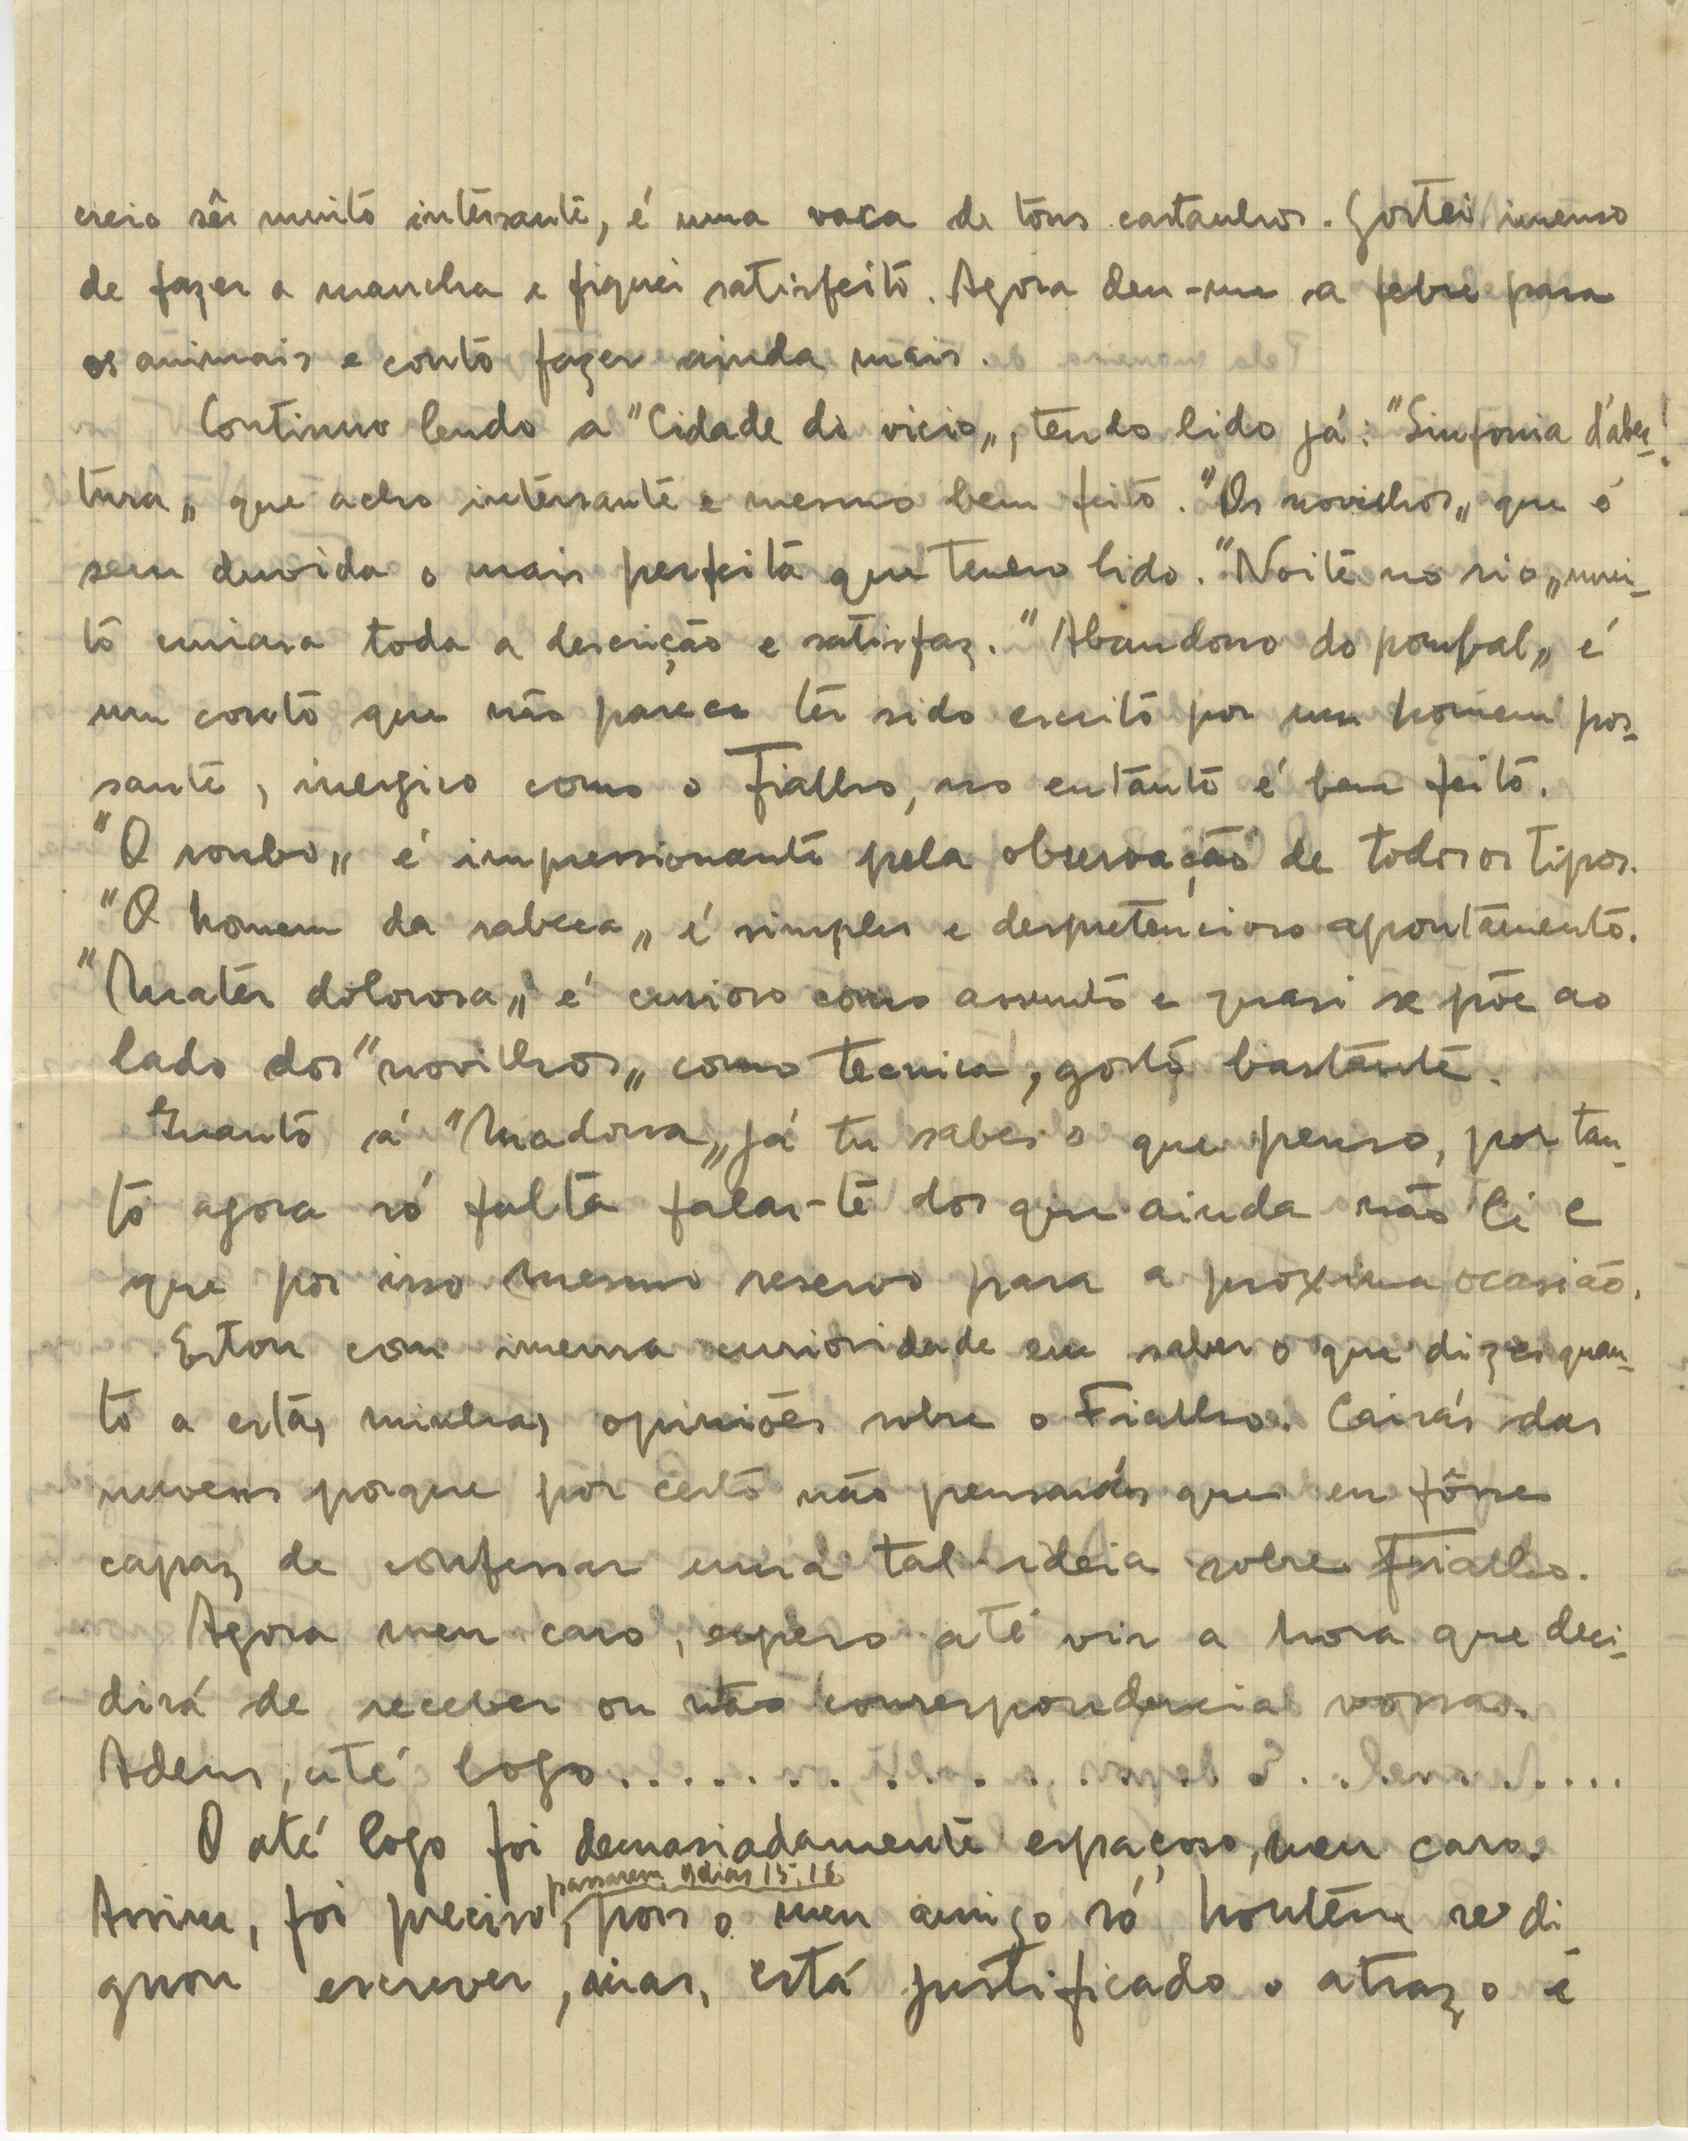 creio sêr muito intersante, é uma vaca de tons castanhos. Gostei imenso
de fazer a mancha e fiquei satisfeito. Agora deu-me a febre para
os animais e conto fazer ainda mais.
Continuo lendo a "Cidade do vicio„, tendo lido já: "Sinfonia d'aber-
tura„ que acho intersante e mesmo bem feito. "Os novilhos„ que é
sem duvida o mais perfeita que tenho lido. "Noite no rio„ mui-
to toda a descrição e satisfaz. "Abandono do pombal„ é
um conto que não parece ter sido escrito por um homem pos-
sante, inergico como o Fialho, no entanto é bem feito.
"O roubo„ é impressionante pela observação de todos os tipos.
"O homem da rabeca„ é simples e despretencioso apontamento.
"Mater dolorosa„ é curioso como assunto e quasi se põe ao
lado dos "novilhos„ como tecnica, gosto bastante.
Quanto á "Madona„ já tu sabes o que penso, por tan-
to agora só falta falar-te dos que ainda não li e
que por isso mesmo reservo para a proxima ocasião.
Estou com imensa curiosidade em saber o que dizes quan-
to a estas minhas opiniões sobre o Fialho. Cairás das
nuvens porque por certo não pensarás que eu fôsse
capaz de confessar uma tal ideia sobre Fialho.
Agora meu caro, espero até vir a hora que deci-
dirá de receber ou não correspondencia vossa.
Adeus, até logo.......................
O até logo foi demasiadamente espaçoso, meu caro.
passarem os dias 15, 16
Assim, foi preciso, pois o meu amigo só hontem se di
gnou escrever, mas, está justificado o atrazo e